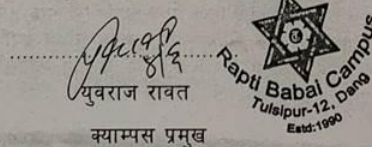 युवराज रावत
क्याम्पस प्रमुख
Rapti Babai Campus
Tulsipur-12, Dang
Estd:1990